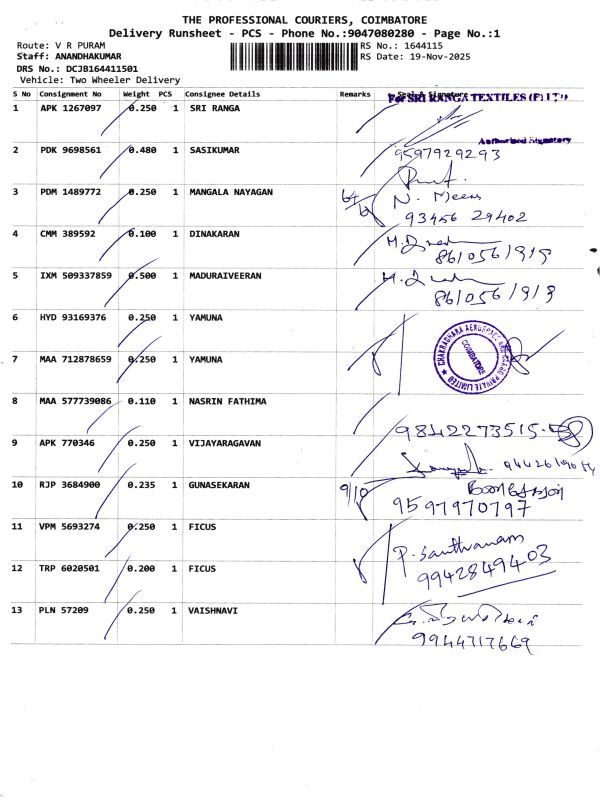 THE PROFESSIONAL COURIERS, COIMBATORE
Delivery Runsheet - PCS - Phone No.:9047080280 - Page No.:1
Route: V R PURAM
RS No.: 1644115
Staff: ANANDHAKUMAR
RS Date: 19-Nov-2025
DRS No.: DCJB164411501
Vehicle: Two Wheeler Delivery
S No Consignment No Weight PCS Consignee Details Remarks Seal & Signature
For SRI RANGA TEXTILES (P) LTD
1 APK 1267097 0.250 1 SRI RANGA
Authorised Signatory
2 PDK 9698561 0.480 1 SASIKUMAR 9597929293
3 PDM 1489772 0.250 1 MANGALA NAYAGAN N. Meena
93456 29402
4 CMM 389592 0.100 1 DINAKARAN
5 IXM 509337859 0.500 1 MADURAIVEERAN
6 HYD 93169376 0.250 1 YAMUNA
CHAKRADHARA AEROSPACE AND CARGO PRIVATE LIMITED
COIMBATORE
7 MAA 712878659 0.250 1 YAMUNA
8 MAA 577739086 0.110 1 NASRIN FATHIMA 9842273515
9 APK 770346 0.250 1 VIJAYARAGAVAN
10 RJP 3684900 0.235 1 GUNASEKARAN 9/10
9597970797
11 VPM 5693274 0.250 1 FICUS P. Santhanam
12 TRP 6020501 0.200 1 FICUS 9942849403
13 PLN 57209 0.250 1 VAISHNAVI
9944717669